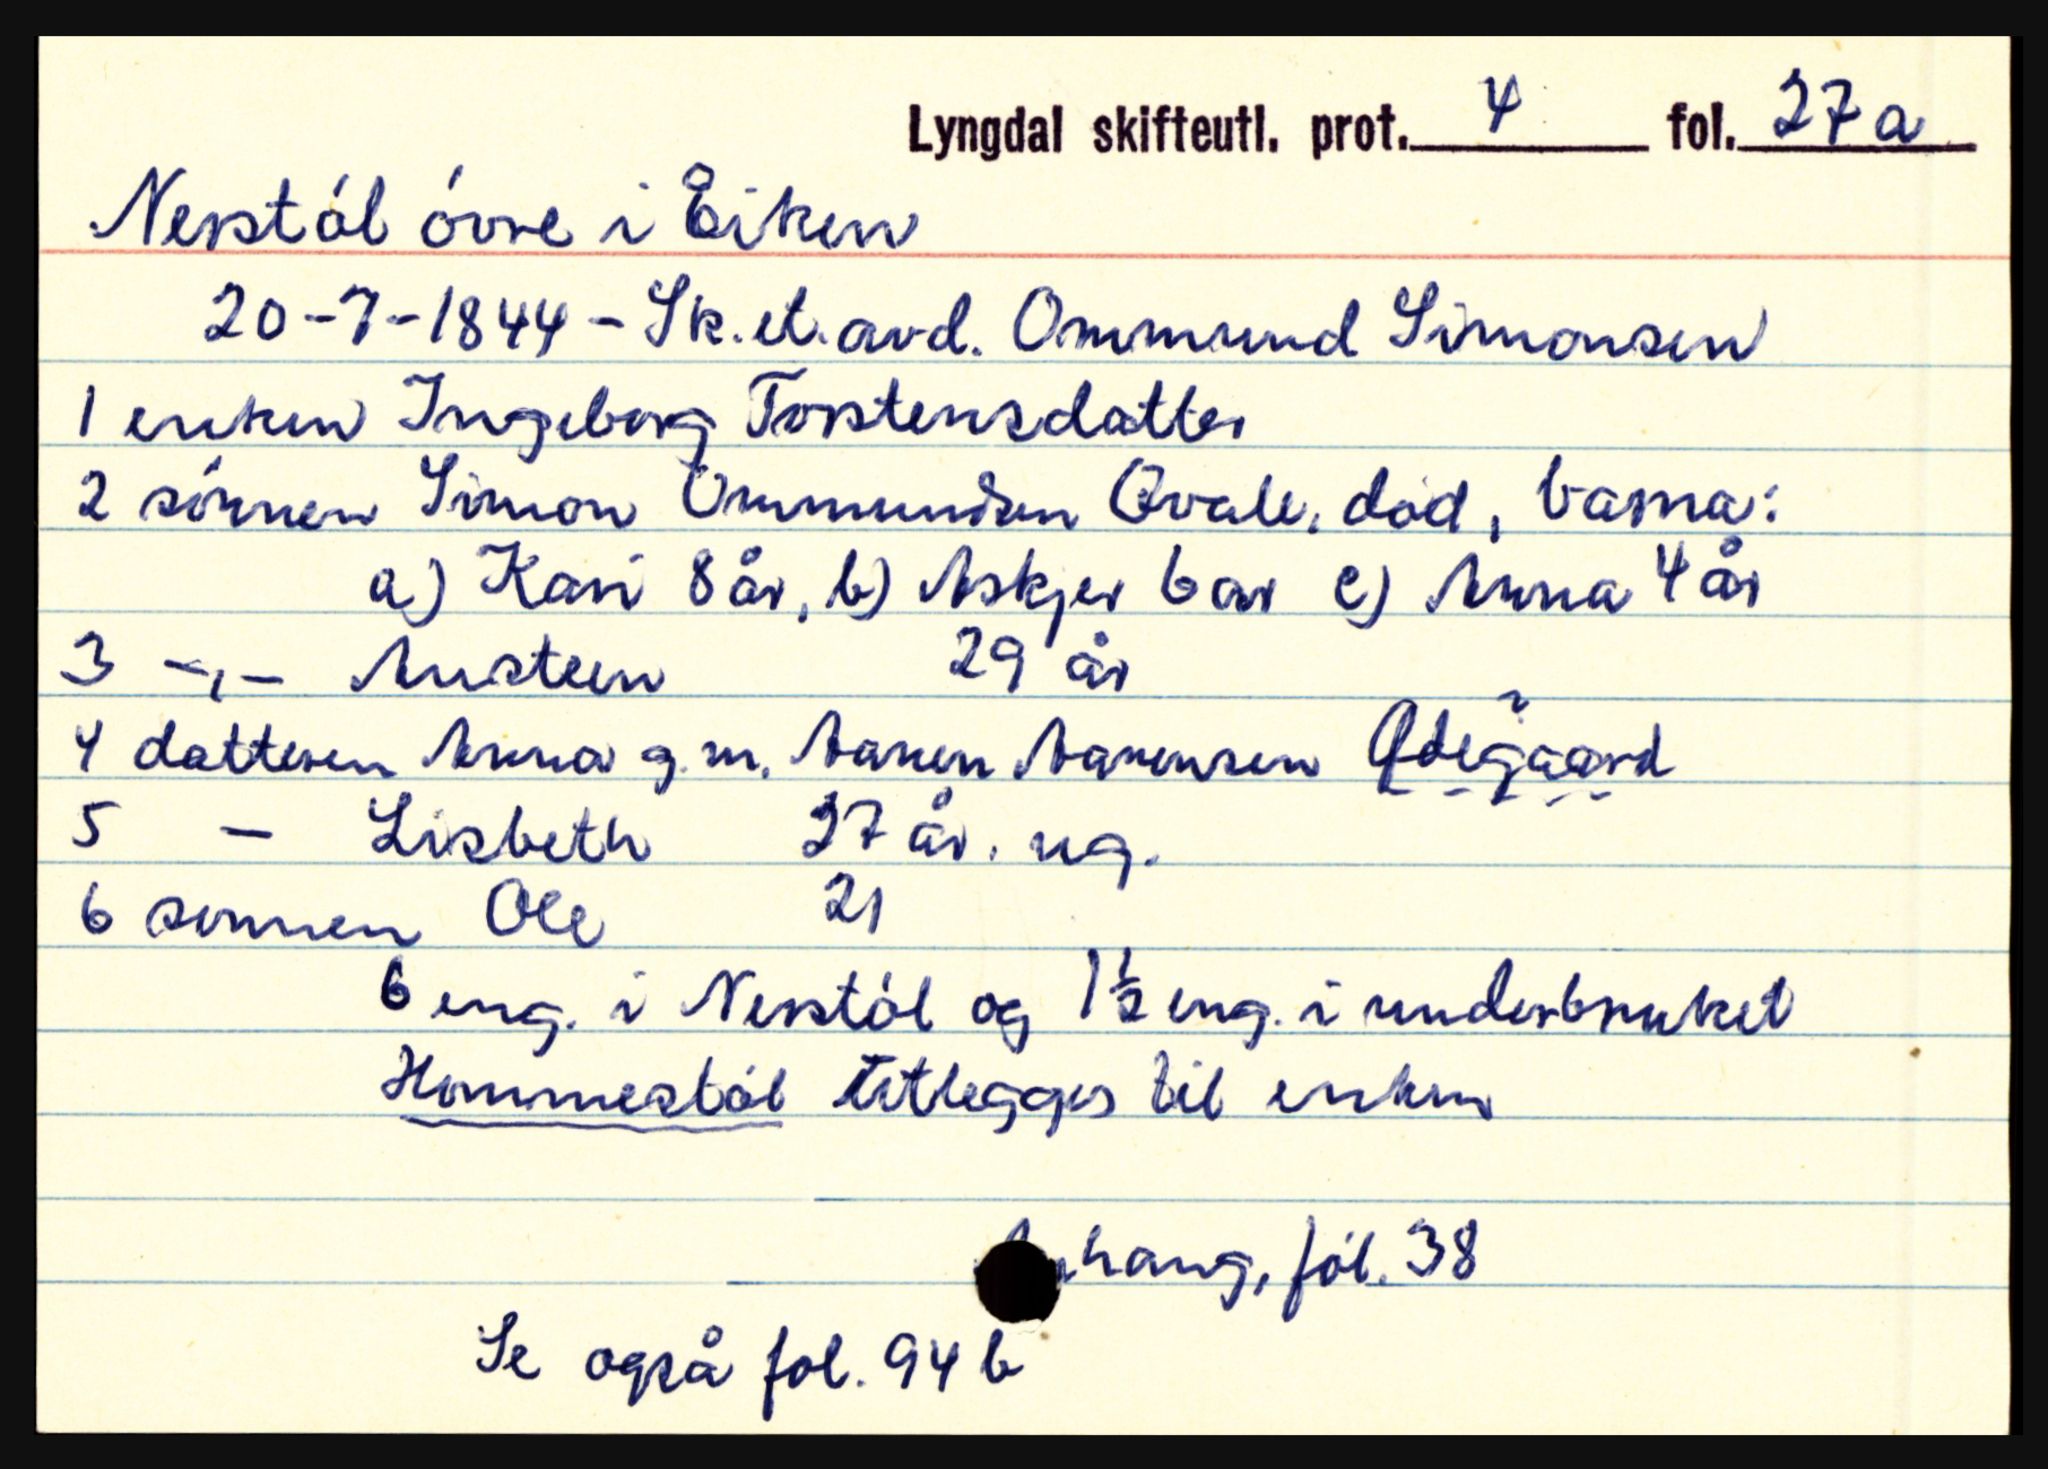 Lyngdal skifteutl. prot. 4 fol. 27a
Nerstöl óvre i Eiken
20-7-1844 - Sk.et.avd. Ommund Simonsen
1 enken Ingeborg Torstensdatter
2 sónnen Simon Ommundsen Qvale, död, barna:
a) Kari 8 år, b) Askjer 6 år c) Anna 4 år
3 -,- Austeen 29 år
4 datteren Anna g.m. Aanen Aanensen Ødegaard
5 - Lisbeth 27 år. ug.
6 sonnen Ole 21
6 eng. i Nerstól og 1½ eng. i underbruket
Hommestól utlegges til enken
Anhang, fól. 38
Se også fol. 94 b